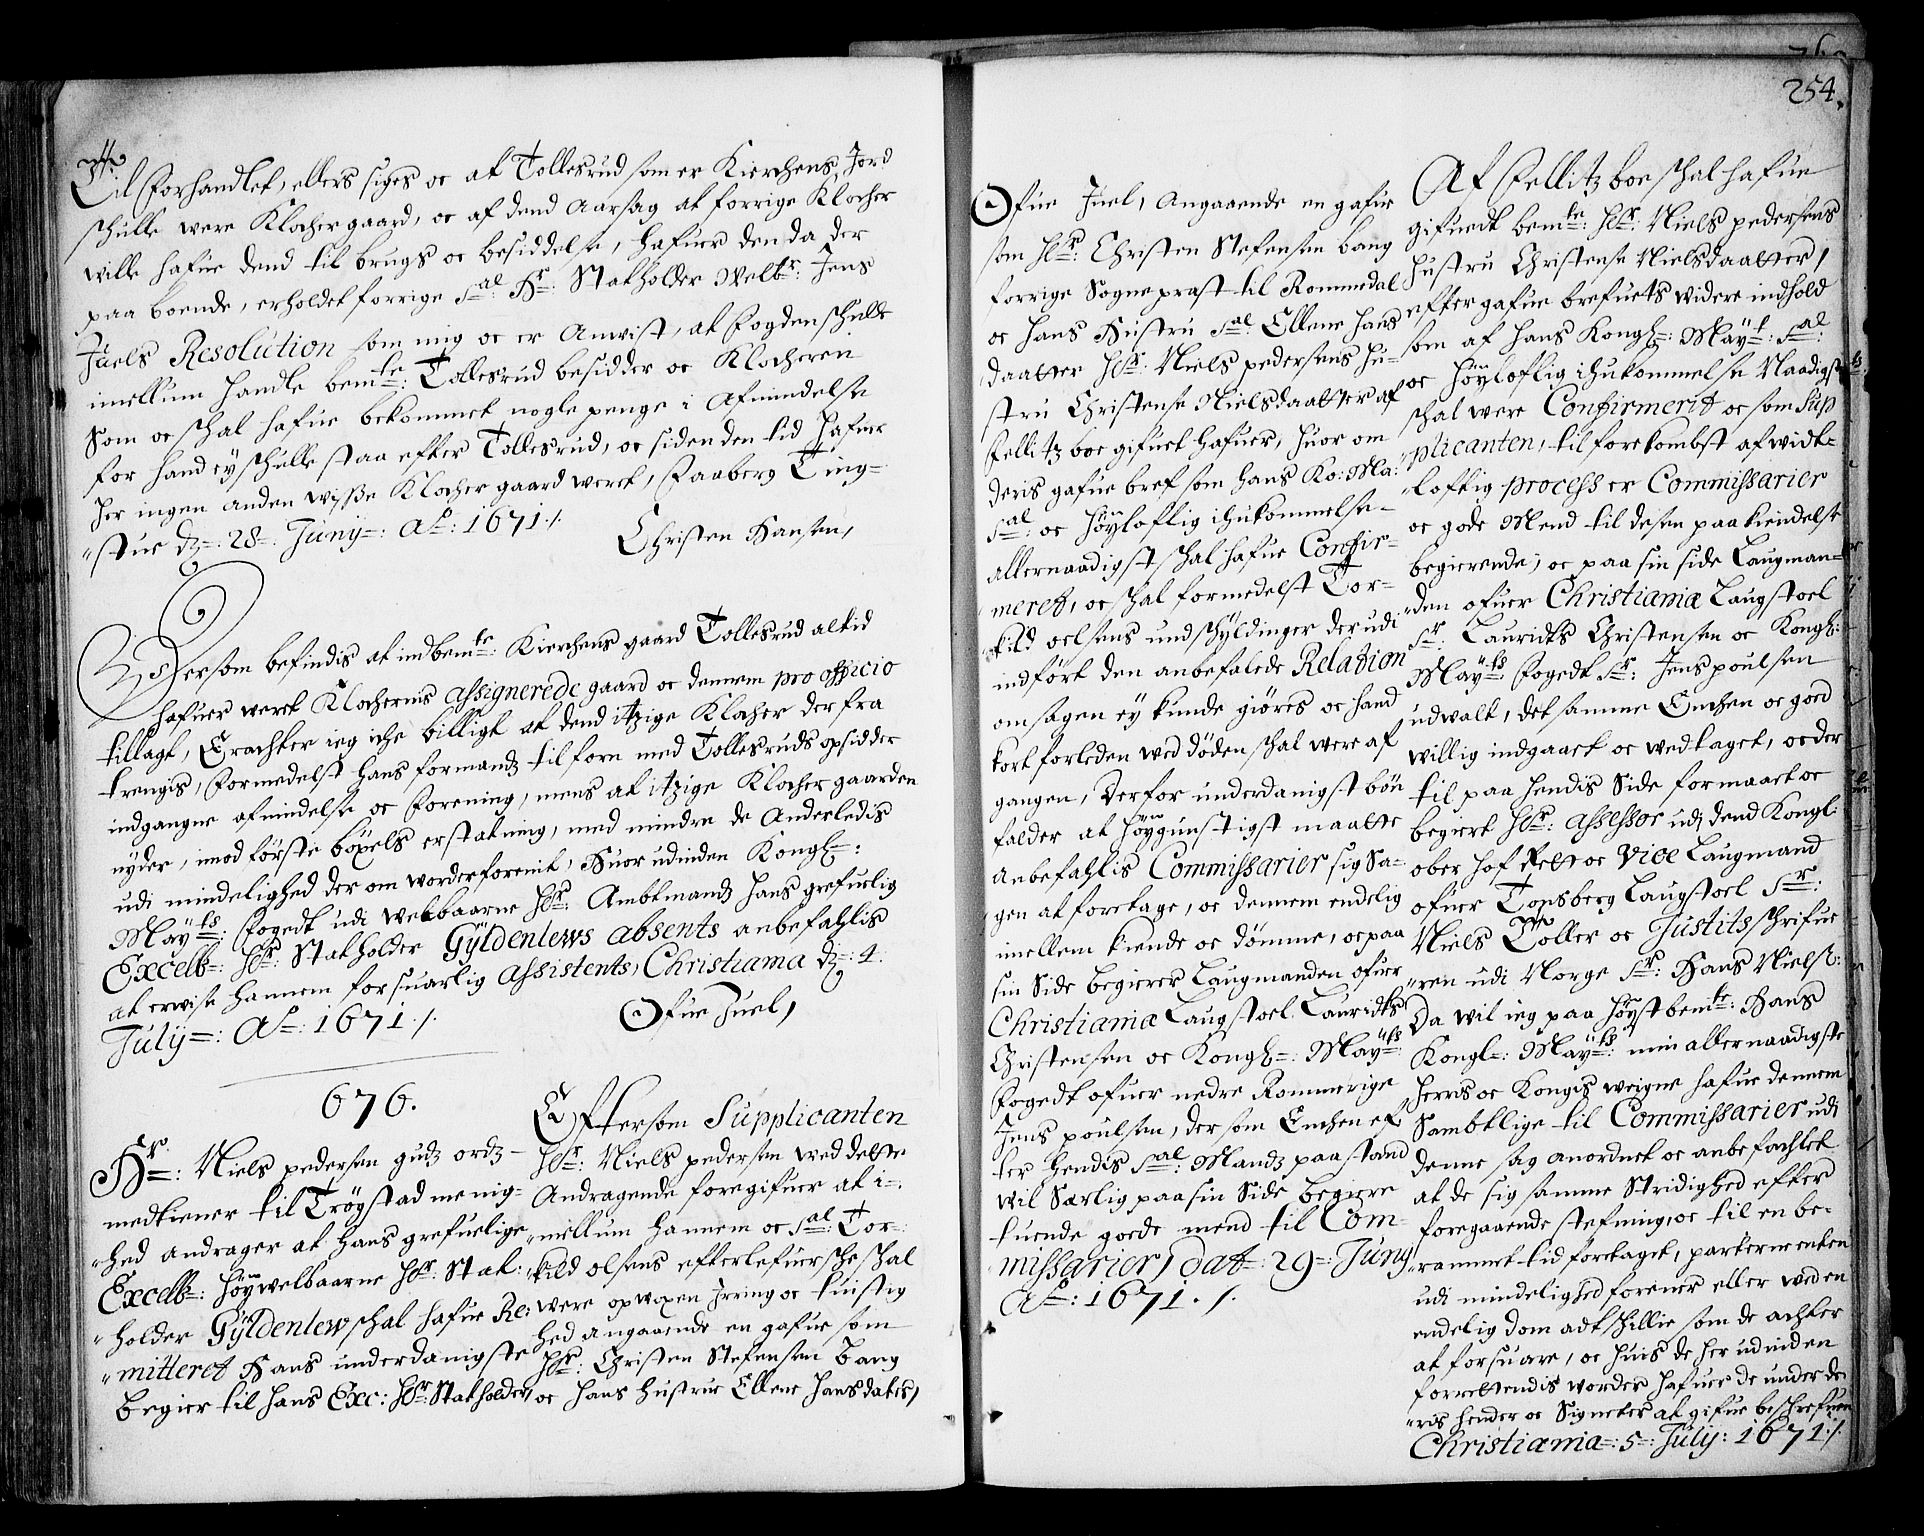 Til forhandlet, ellers siges oc at Tollesrud som er Kierchens Jord
schulle were Klochergaard, oc af dend Aarsag at forrige Klocher
wille hafue dend til brugs oc besiddelse, hafuer den da der
paa boende, erholdet forrige Sal: Hr: Statholder Welb: Jens
Juels Resolution som mig oc er Anwist, at fogden schulle
imellum handle bemte: Tollesrud besidder oc Klocheren
Som oc schal hafue bekommet nogle penge i Afmindelse
for hand ey schulle staa efter Tollesrud, oc siden den tid hafuer
her ingen anden wisse Klocher gaard weret, Faaberg Ting=
"stue dz=: 28=. Junij=: Ao=: 1671 ./.
Christen Hansen,
Dersom befindis at indbemte: Kierchens gaard Tollesrud altid
hafuer weret Klochernis assignerede gaard oc dennem pro officio
tillagt, Erachter ieg iche billigt at dend itzige Klocher der fra
trengis, formedelst hans formandz til forn med Tollesruds opsidder
indgangne afmindelse oc forening, mens at itzige Klocher gaarden
nyder, imod første bøxels erstatning, med mindre de Anderledis
udi mindelighed der om worder forenit, Huor udinden Kongl=:
Mayts: fogedt udi welbaarne Hr: Ambtmandz hans grefuelig
Excell=: Hr: Statholder Gÿldenlews absents anbefahlis
at erwise hannem forsuarlig assistents, Christiania dz=: 4:
Julij=: Ao=: 1671 ./.
Ofue Juel,
676.
Hr=: Niels pedersen gudz ordz-
medtiener til Trøgstad menig=
"hed andrager at hans grefuelige
Excell=: Høywelbaarne Hr: Stat:
"holder Gÿldenlew schal hafue Re:
"mitteret Hans underdanigste
begier til hans Exc: Hr: Statholder,
Eftersom Supplicanten
Hr: Niels pedersen wed dette
Andragende foregifuer at i=
"mellum hannem oc Sal: Tor=
"kild olsens efterlefuersche schal
were opwoxen Irring oc tuistig
hed angaaende en gafue som
Hr: Christen Stefensen bang
oc hans Hustrue Ellene Hansdater,
254.
Ofue Juel, Angaaende en gafue
som Hr: Christen Stefensen bang
forrige Sogneprest til Rommedal
oc hans Hustru Sal: Ellene Hans
daatter Hr: Niels pedersens Hu=
stru Christense Nielsdaatter af
fellitz boe gifuet hafuer, huor om
deris gafue bref som hans Ko: Ma:
Sal: oc Høyloflig ihukommelse-
allernaadigst schal hafue Confir=
meret, oc schal formedelst Tor=
kild oelsens undschyldinger der udi
indført den anbefalede Relation
om sagen ey kunde giøres oc hand
kort forleden wed døden schal were af
gangen, Derfor underdanigst bøn
falder at høygunstigst maatte
anbefahlis Commissarier sig Sa=
gen at foretage, oc dennem endelig
imellem kiende oc dømme, oc paa
sin Side begierer Laugmanden ofuer
Christiania Laugstoel Lauridts
Christensen oc Kongl=: Mayts:
fogedt ofuer nedre Rommerige
Jens poulsen, der som Enchen ef
ter hendis Sal: Mandz paastand
wil særlig paa sin Side begiere
tuende goede mend til Com=
missarier, dat=: 29= Junij
Ao: 1671 ./.
Af fellitz boe schal hafue
gifuedt bemte: Hr: Niels pedersens
Hustru Christense Nielsdaatter,
efter gafue brefuets widere indhold
som af hans Kongl: Mayt: Sal:
oc Høyloflig ihukommelse Naadigst
schal were Confirmerit oc som Sup
plicanten, til forekombst af widt=
loftig process er Commissarier
oc gode Mend til desen paakiendelse
begierende, oc paa sin side Laugman=
"den ofuer Christiania Laugstoel
Sr: Lauridts Christensen oc Kongl:
Mayts fogedt Sr: Jens poulsen
udwalt, det samme Enchen oc goed
willig indgaaet oc wedtaget, oc der
til paa hendis Side formaaet oc
begiert Hr: Assessor udi dend Kongl:
ober hof Rett oc Vice Laugmand
ofuer Tonsberg Laugstoel Sr:
Niels Toller oc Justitsschrifue
"ren udi Norge Sr: Hans Niels:
Da wil ieg paa høystbemte: Hans
Kongl=: Mayts: min allernaadigste
Herris oc Kongis weigne hafue dennem
Sambtlige til Commissarier udi
denne sag anordnet oc anbefachlet
at de sig samme Stridighed efter
foregaaende stefning, oc til en be=
"rammet tid foretaget, parterne enten
udi mindelighed forener eller wed en
endelig dom adtschillie som de achter
at forsuare, oc huis de her udinden
forrettendis worder hafuer de under de
"ris hender oc Signeter at gifue beschrefuen
Christiania=: 5=: Julij: 1671 ./.